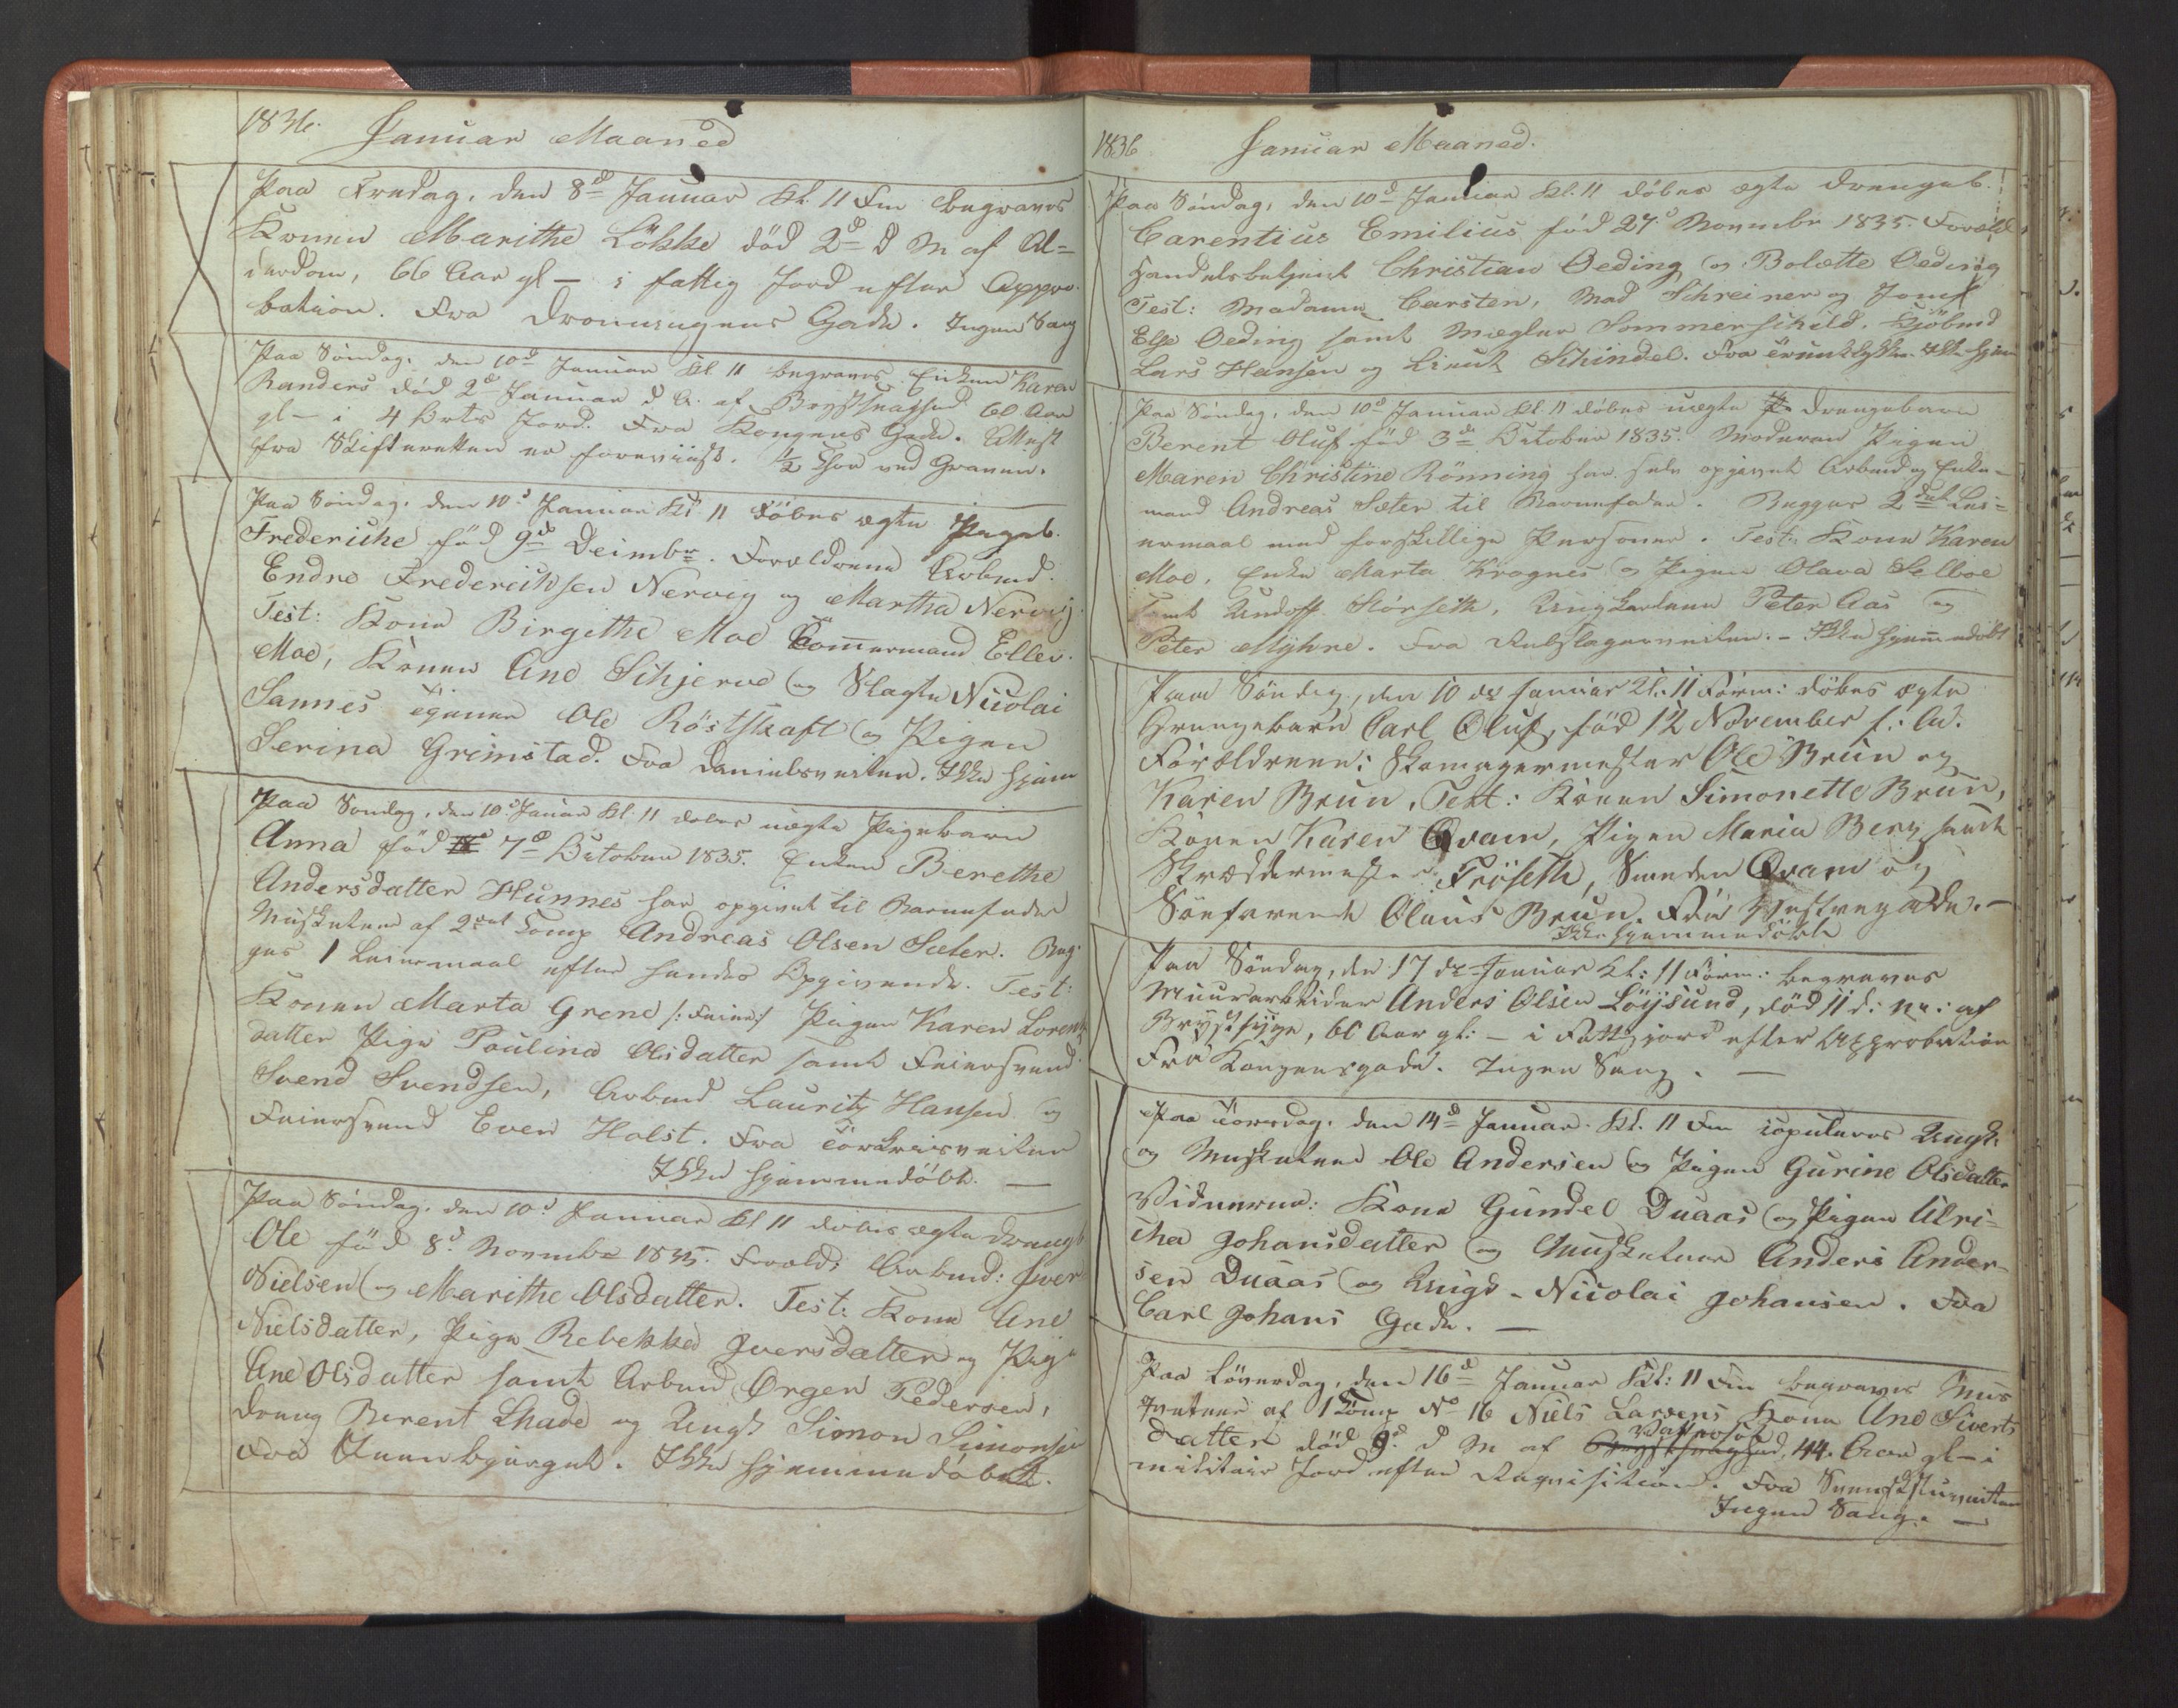 1836. Januar Maaned
Paa Fredag, den 8d Januar Kl. 11 Fm begraves
Konen Marithe Lökke död 2d d M af Al=
derdom, 66 Aar gl – i fattig Jord efter Appro-
bation. Fra Dronningens Gade. Ingen Sang
Paa Söndag, den 10d Januar Kl 11 begraves Enken Karen
Randers död 2d Januar d A. af Brystsvaghed 60 Aar
gl – i 4 Orts Jord. Fra Kongens Gade. Attest
fra Skifteretten er foreviist. 1/2 Chor ved Graven.
Paa Söndag, den 10d Januar Kl 11 döbes ægte Pigeb.
Frederiche föd 9d Decembr. Forældrene Arbmd.
Endre Frederichsen Nervig og Martha Nervig.
Test: Kone Birgithe Moe Tommermand Ellev.
Moe, Konen Ane Schjerve og Slagter Nicolai
Sannes Eiener Ole Röstskaft og Pigen
Serina Grimstad. Fra Danielsveiten. Ikke hjem
Paa Söndag, den 10d Januar Kl. 11 döbes uægte Pigebarn
Anna föd 7d October 1835. Enken Berethe
Andersdatter Hunnes har opgivet til Barnefader
Musketeer af 2det Comp Andreas Olsen Sæter. Beg-
ges 1 Leiermaal efter hendes Opgivende. Test:
Konen Marta Grene /: Feier :/ Pigen Karen Lorentz
datter Pige Paulina Olsdatter samt Feiersvend
Svend Svendsen, Arbmd Lauritz Hansen og
Feiersvend Even Holst. Fra Törkeisveiten
Ikke hjemmedöbt. —
Paa Söndag, den 10d Januar Kl 11 döbes ægte Drengb
Ole föd 8d Novembr 1835. Foræld: Arbmd: Iver
Nielsen og Marithe Olsdatter. Test: Kone Ane
Nielsdatter, Pige Rebekka Iversdatter og Pige
Ane Olsdatter samt Arbmd Örger Pedersen,
Dreng Berent Schade og Ungk Simon Simonsen
Fra Steenbjerget. Ikke hjemmedöbt.
1836 Januar Maaned.
Paa Söndag, den 10d Januar Kl. 11 döbes ægte Drengeb.
Carentius Emilius föd 27d Novembr 1835. Foræld
Handelsbetjent Christian Oeding og Bolætte Oeding
Test: Madame Carsten, Mad Schreiner og Jomf
Else Oeding samt Mægler Sommerschild, Kjöbmd
Lars Hansen og Lieut Schindel. Fra Ikke hjem
Paa Söndag, den 10d Januar Kl. 11 döbes uægte Drengebarn
Berent Oluf föd 3d October 1835. Moderen Pigen
Maren Christine Rönning har selv opgivet Arbmd og Enke-
mand Andreas Sæter til Barnefader. Begges 2det Lei=
ermaal med forskjellige Personer. Test: Kone Karen
Moe, Enke Marta Krognes og Pigen Olava Selboe
samt Underoff. Störseth, Ungkarlene Peter Aas og
Peter Myhre. Fra Rebslagerveiten. – Ikke hjemmedöbt
Paa Söndag, den 10 de Januar Kl: 11 Form: döbes ægte
Drengebarn Carl Oluf, föd 12 November f: A.
Forældrene: Skomagermester Ole Brun og
Karen Brun, Test: Konen Simonette Brun,
Konen Karen Qvam, Pigen Maria Berg samt
Skræddermester Fröseth, Svenden Qvam og
Söefarende Olaus Brun. Fra Vestregade. –
Ikke hjemmedöbt
Paa Söndag, den 17 de Januar Kl: 11 Form: begraves
Muurarbeider Anders Olsen Löjsund, död 11 d: M: af
Brystsyge, 60 Aar gl: – i Fattigjord efter Approbation
Fra Kongensgade. Ingen Sang. —
Paa Torsdag, den 14d Januar Kl. 11 Fm copuleres Ungk.
og Musketeer Ole Andersen og Pigen Gurine Olsdatter
Vidnerne: Kone Gundel Duaas og Pigen Ulri=
cha Johansdatter og Musketeer Anders Ander-
sen Duaas og Ungk – Nicolai Johansen. Fra
Carl Johans Gade. —
Paa Löverdag, den 16d Januar Kl: 11 Fm begraves Mus
keteer af 1 Comp No 16 Niels Larsens Kone Ane Siverts
datter död 9d d M af Vattersot, 44 Aar gl – i
militair Jord efter Reqvisition. Fra
Ingen Sang. —